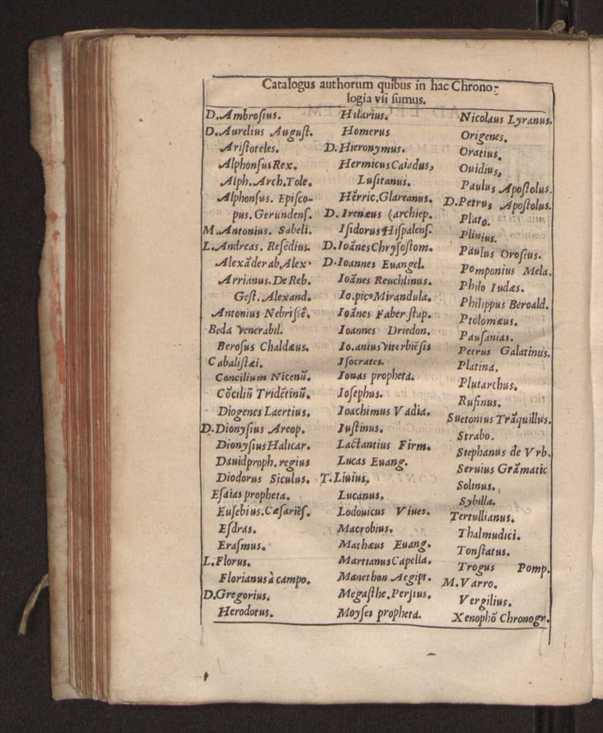 Catalogus authorum quibus in hac Chrono-
logia vſi ſumus.
D. Ambroſius.
D. Aurelius Auguſt.
Ariſtoteles.
Alphonſus Rex.
Alph. Arch. Tole.
Alphonſus. Epiſco-
pus. Gerundenſ.
M. Antonius. Sabeli.
L. Andreas. Reſẽdius.
Alexãder ab Alex.
Arrianus. De Reb.
Geſt. Alexand.
Antonius Nebriſẽ.
Beda Venerabil.
Beroſus Chaldæus.
Cabaliſtæi.
Concilium Nicenũ.
Cõciliũ Tridẽtinũ.
Diogenes Laertius.
D. Dionyſius Areop.
Dionyſius Halicar.
Dauid proph. regius
Diodorus Siculus.
Eſaias propheta.
Euſebius. Cæſariẽſ.
Eſdras.
Eraſmus.
L. Florus.
Florianus à campo.
D. Gregorius.
Herodotus.
Hilarius.
Homerus
D. Hieronymus.
Hermicus Caiadus,
Luſitanus.
Hẽric. Glareanus.
D. Irenæus (archiep.
Iſidorus Hiſpalenſ.
D. Ioãnes Chryſoſtom.
D. Ioannes Euangel.
Ioãnes Reuchlinus.
Io. pico Mirandula.
Ioãnes Faber ſtap.
Ioannes Driedon.
Io. anius Viterbiẽſis
Iſocrates.
Ionas propheta.
Ioſephus.
Ioachimus Vadia.
Iuſtinus.
Lactantius Firm.
Lucas Euang.
T. Liuius,
Lucanus.
Lodouicus Viues.
Macrobius.
Mathæus Euang.
Martianus Capella.
Manethon Aegipt.
Megaſthe. Perſius.
Moyſes propheta.
Nicolaus Lyranus.
Origenes.
Oratius.
Ouidius,
Paulus Apoſtolus.
D. Petrus Apoſtolus.
Plato.
Plinius.
Paulus Oroſius.
Pomponius Mela.
Philo Iudæus.
Philippus Beroald.
Ptolomæus.
Pauſanias.
Petrus Galatinus.
Platina.
Plutarchus.
Rufinus.
Suetonius Trãquillus.
Strabo.
Stephanus de Vrb.
Seruius Grãmatic
Solinus.
Sybilla.
Tertullianus.
Thalmudici.
Tonſtatus.
Trogus Pomp.
M. Varro.
Vergilius.
Xenophõ Chronogr.